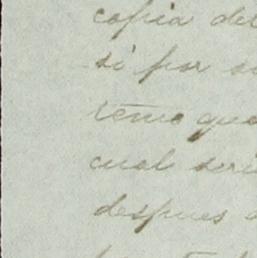 copia del
si por su
temo que
cual seri
despues d